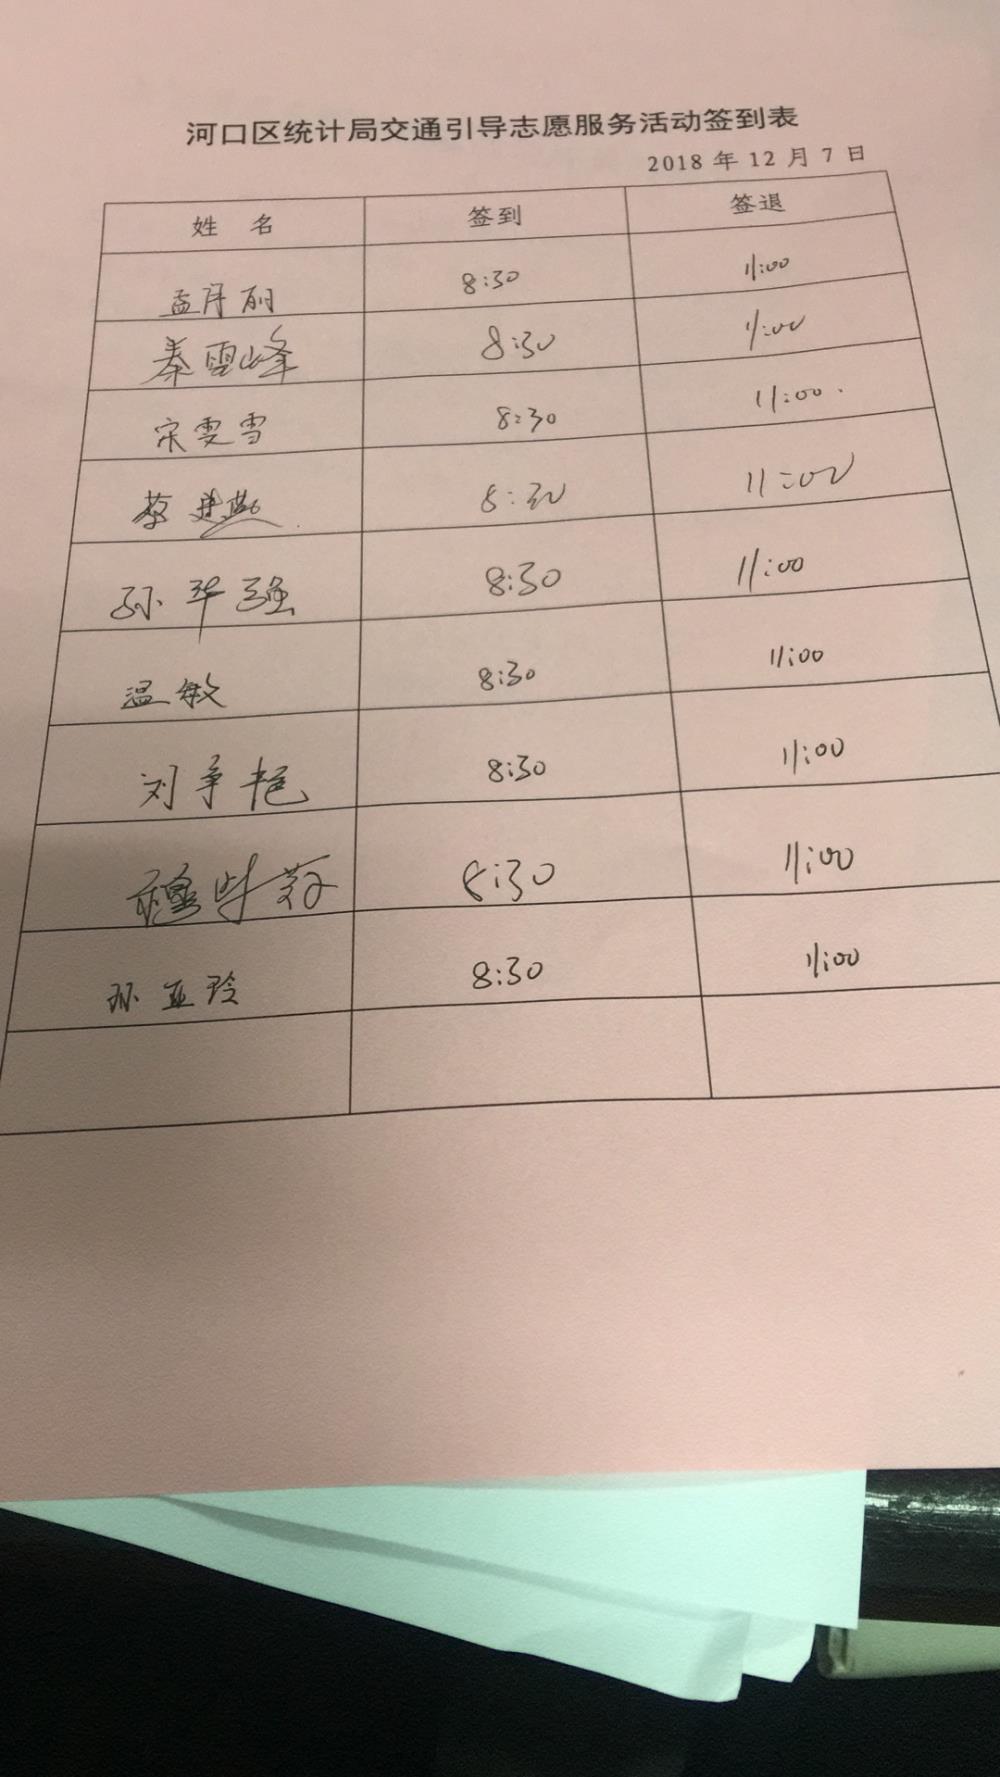 河口区统计局交通引导志愿服务活动签到表
2018 年 12 月 7 日
姓 名 签到 签退
孟月丽 8:30 11:00
秦雪峰 8:30 11:00
宋雯雪 8:30 11:00
蔡建燕 8:30 11:00
孙华强 8:30 11:00
温敏 8:30 11:00
刘争艳 8:30 11:00
8:30 11:00
孙亚玲 8:30 11:00